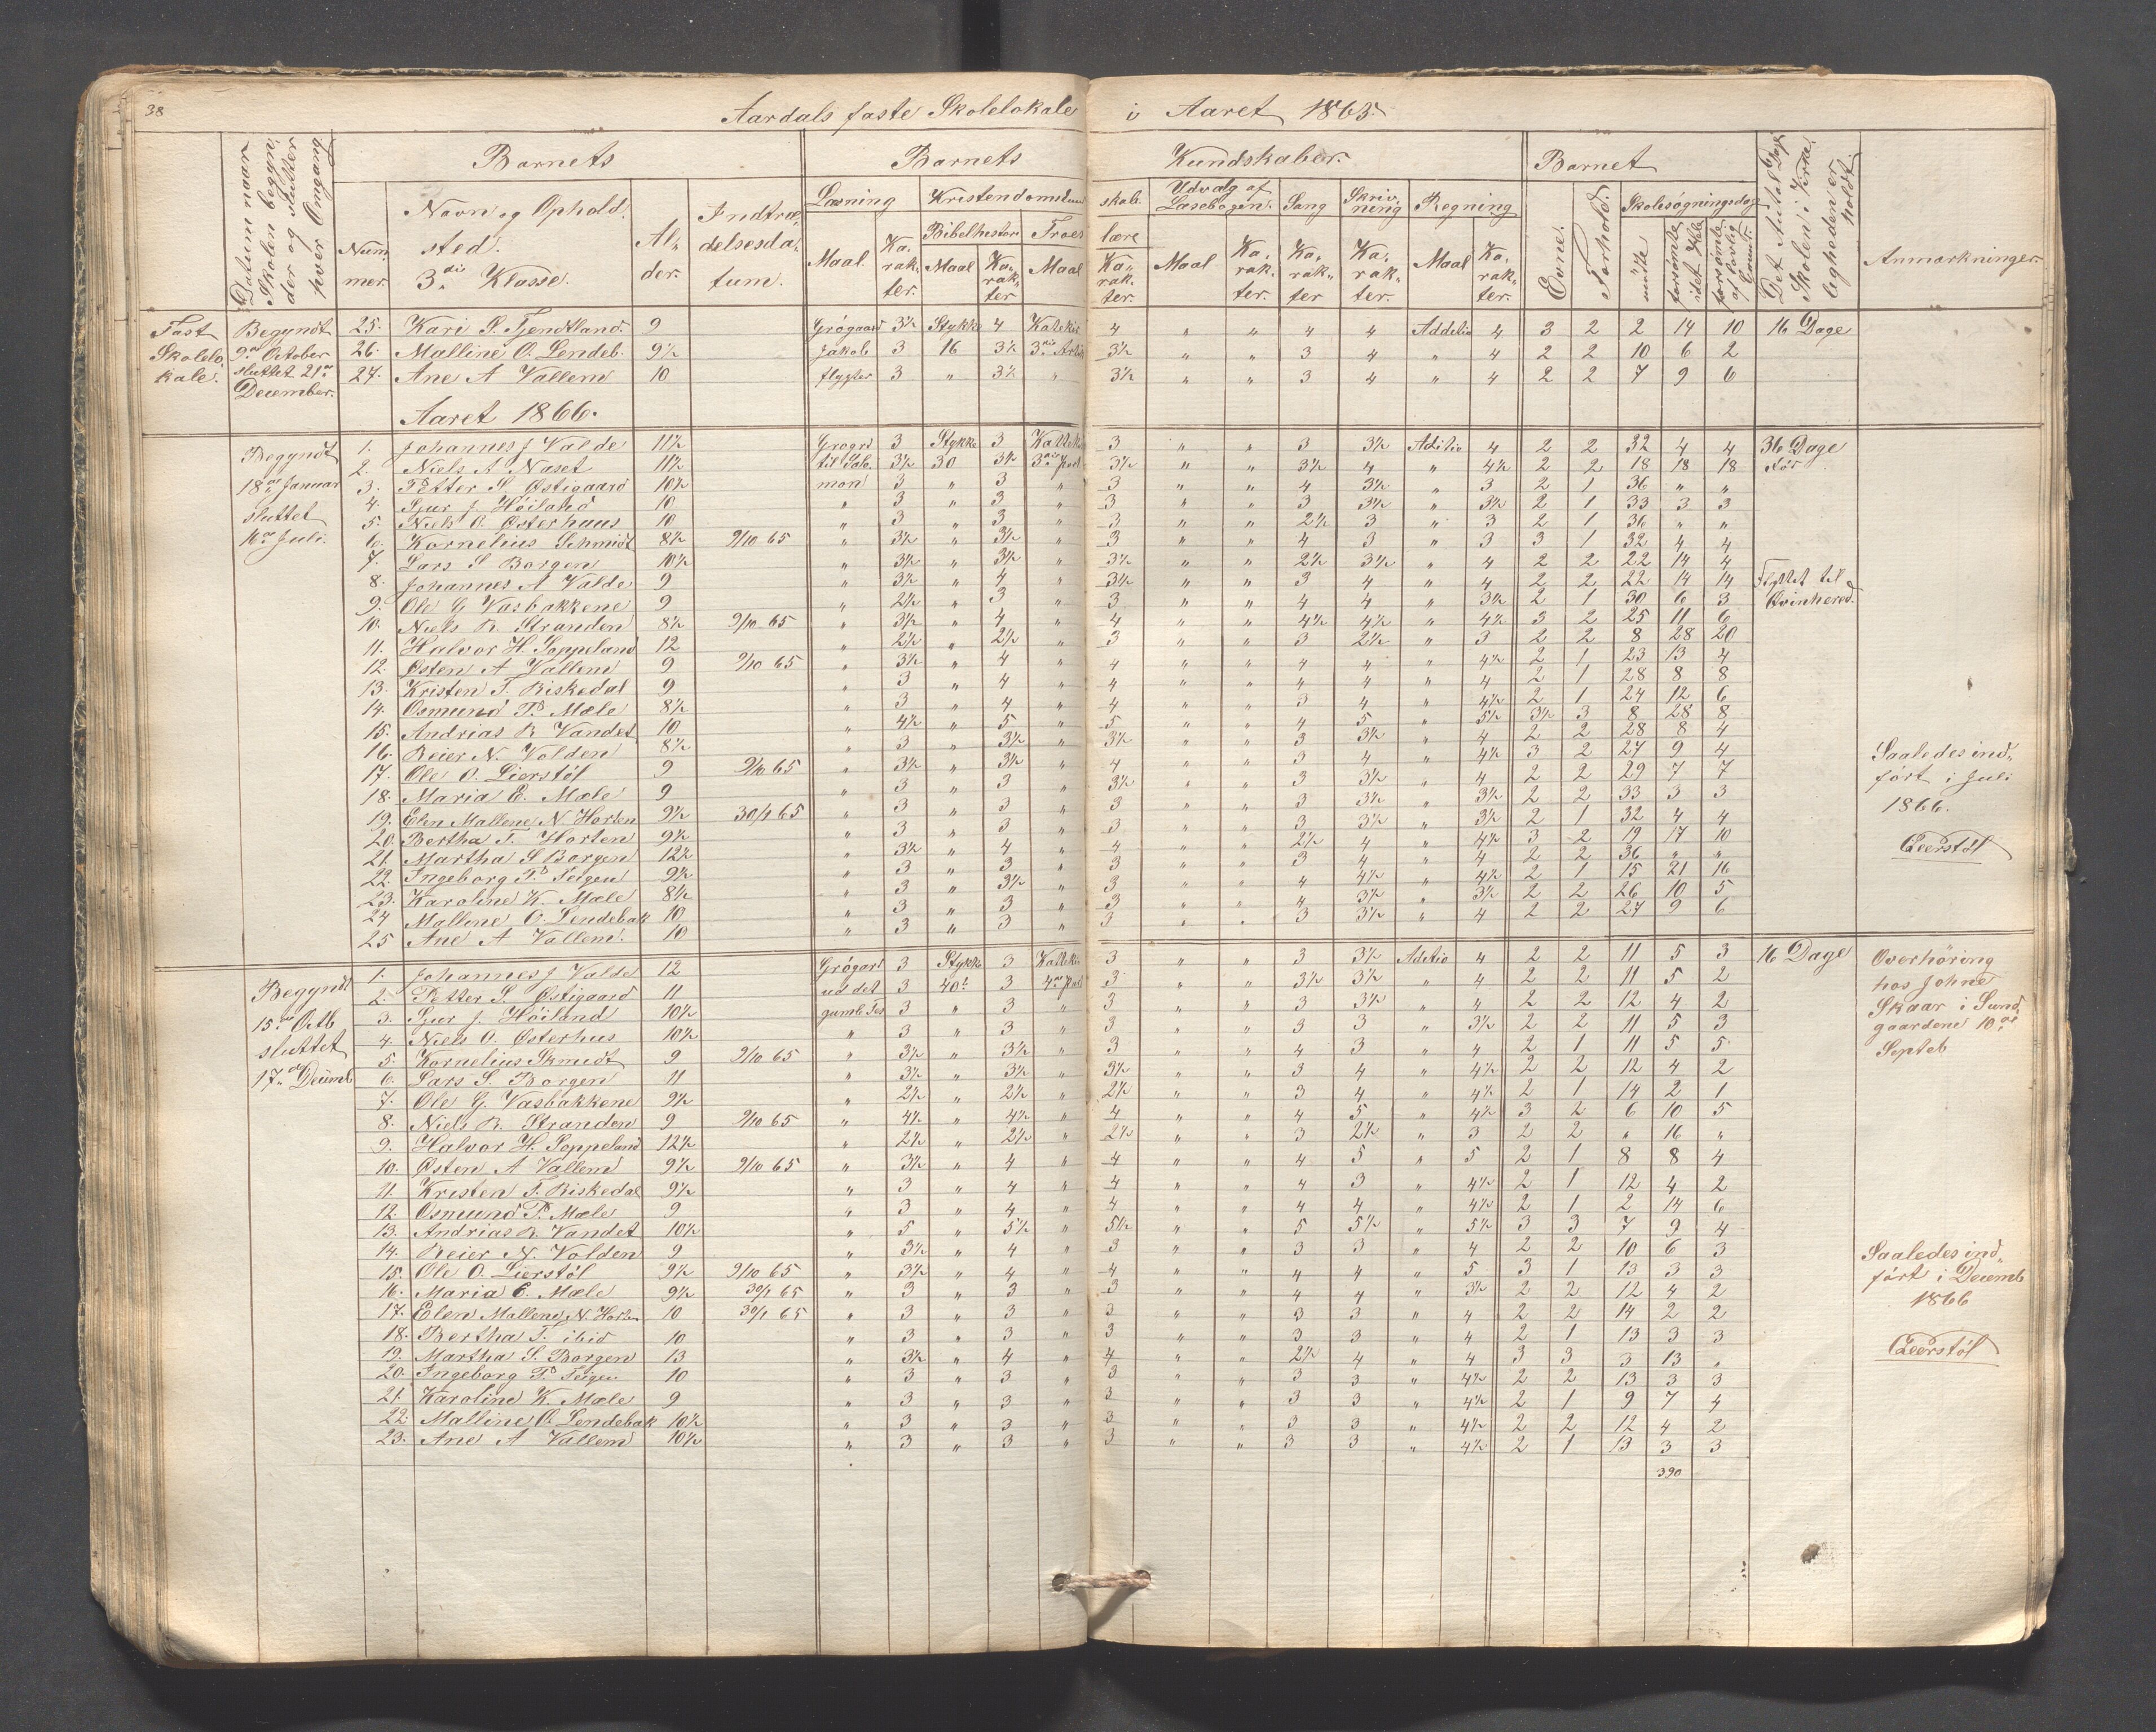 38
Aardals faste Skolelokale i Aaret 1865.
Datum naar Skolen begynder og slutter hver Omgang
Barnets
Barnets Kundskaber.
Barnet
Det Antal Dage Skolen i Virkeligheden er holdt
Anmærkninger
Nummer.
Navn og Opholdsted.
3die Klasse.
Alder.
Indtrædelsesdatum.
Læsning
Kristendomskundskab.
Bibelhistor
Troeslære
Udvalg af Læsebogen.
Sang
Skrivning
Regning
Evne.
Forhold.
Skolesøgningsdage
Maal. Karakter. Maal Karakter Maal Karakter. Maal Karakter. Karakter Karakter. Maal Karakter.
mødte
forsømte i det Hele
forsømte af lovlig Grund.
Fast Skolelokale.
Begyndt 9de October sluttet 21de December.
25. Kari S. Tjendtland. 9 Grøgaard 3½ Stykke 4 Katekis 4 " " 4 4 Addetio 4 3 2 2 14 10 16 Dage
26. Malline O. Lendeb. 9½ Jakob 3 16 3½ 3die Artik 3½ " " 3 4 " 4 2 2 10 6 2
27. Ane A Vallem 10 flygter 3 " 3½ " 3½ " " 3 4 " 4 2 2 7 9 6
Aaret 1866.
Begyndt 18de Januar sluttet 16de Juli.
1. Johannes J Valde 11½ Grøgrd 3 Stykke 3 Katek 3 " " 3 3½ Aditio 4 2 2 32 4 4 36 Dage
2. Niels A Naset 11½ til Salo 3½ 30 3½ 3die Part 3½ " " 3½ 4 " 4½ 2 2 18 18 18
3. Petter S Østigaard 10½ mon 3 " 3 " 3 " " 4 3½ " 3 2 1 36 " "
4. Sjur J. Høiland 10 " 3 " 3 " 3 " " 3 3½ " 3½ 2 1 33 3 3
5. Niels O. Østerhuus 10 " 3 " 3 " 3 " " 2½ 3 " 3 2 1 36 " "
6. Kornelius Schmidt 8½ 9/10 65 " 3½ " 3½ " 3 " " 4 3 " 3 3 1 32 4 4
7. Lars S Borgen 10½ " 3½ " 3½ " 3½ " " 2½ 3½ " 4 2 2 22 14 4
8. Johannes A Valde 9 " 3½ " 4 " 3½ " " 3 4 " 4 2 2 22 14 14 Flyttet til
9. Ole G Vasbakkene 9 " 2½ " 3 " 3 " " 4 4 " 3½ 2 1 30 6 3 Qvinhered.
10. Niels R. Stranden 8½ 9/10 65 " 3½ " 4 " 4 " " 4½ 4½ " 4½ 3 2 25 11 6
11. Halvor H. Soppeland 12 " 2½ " 2½ " 3 " " 3 2½ " 3 2 2 8 28 20
12. Østen A Vallem 9 9/10 65 " 3½ " 4 " 4 " " 4 4 " 4½ 2 1 23 13 4
13. Kristen T. Riskedal 9 " 3 " 4 " 4 " " 4 4 " 4 2 1 28 8 8
14. Osmund Pd. Mæle 8½ " 3 " 4 " 4 " " 3 4 " 4½ 2 1 24 12 6
15. Andrias R Vandet 10 " 4½ " 5 " 5 " " 4 5 " 5½ 3½ 3 8 28 8
16. Reier N. Volden 8½ " 3 " 3½ " 3½ " " 3 3½ " 4 2 2 28 8 4
17. Ole O. Lierstøl 9 9/10 65 " 3½ " 3½ " 4 " " 3 4 " 4½ 3 2 27 9 4
18. Maria E. Mæle 9 " 3 " 3 " 3½ " " 3 3½ " 4 2 2 29 7 7
19. Elen Mallene N. Horten 9½ 30/1 65 " 3 " 3 " 3 " " 3 3½ " 3½ 2 2 33 3 3
20. Bertha T. Horten 9½ " 3 " 3 " 3 " " 3 3½ " 3½ 2 1 32 4 4
21. Martha S Borgen 12½ " 3½ " 4 " 4 " " 2½ 4 " 4½ 3 2 19 17 10
22. Ingeborg Pd Teigen 9½ " 3 " 3 " 3 " " 3 4 " 4 2 2 36 " "
23. Karoline K. Mæle 8½ " 3 " 3½ " 3 " " 4 4½ " 4½ 2 1 15 21 16
24 Malline O. Lendebak 10 " 3 " 3 " 3 " " 4 3½ " 3½ 2 2 26 10 5
25 Ane A Vallem. 10 " 3 " 3 " 3 " " 3 3½ " 4 2 2 27 9 6
Saaledes indført i Juli
1866.
Lierstøl
Begyndt 15de Octb sluttet 17de Decemb
1. Johannes J Valde 12 Grøgard 3 Stykke 3 Katekis 3 " " 3 3½ Adetio 4 2 2 11 5 3 16 Dage
2. Petter S. Østigaard 11 ud det 3 40de 3 4de Part 3 " " 3½ 3½ " 4 2 2 11 5 2
3. Sjur J. Høiland 10½ gamle Tes 3 " 3 " 3 " " 3 3½ " 4 2 2 12 4 2
4. Niels O. Østerhus 10½ " 3 " 3 " 3 " " 3 3 " 3½ 2 2 11 5 3
5. Kornelius Skmidt 9 9/10 65 " 3½ " 3½ " 3 " " 4 3 " 4 2 1 11 5 5
6. Lars S. Borgen 11 " 3½ " 3½ " 3½ " " 3 4 " 4½ 2 2 12 4 2
7. Ole G. Vasbakkene 9½ " 2½ " 2½ " 2½ " " 3 4 " 4½ 2 1 14 2 1
8. Niels R. Stranden 9 9/10 65 " 4½ " 4½ " 4 " " 4 5 " 4½ 3 2 6 10 5
9. Halvor H. Soppeland 12½ " 2½ " 2½ " 2½ " " 3 2½ " 3 2 2 " 16 "
10. Østen A Vallem 9½ 9/10 65 " 3½ " 4 " 4 " " 4 5 " 5 2 1 8 8 4
11. Kristen T. Riskedal 9½ " 3 " 4 " 4 " " 4 3 " 4½ 2 1 12 4 2
12. Osmund Pd. Mæle 9 " 3 " 4 " 4 " " 4 4 " 4½ 2 1 2 14 6
13. Andrias R Vandet 10½ " 5 " 5½ " 5½ " " 5 5½ " 5½ 3 3 7 9 4
14. Reier N. Volden 9 " 3½ " 4 " 3 " " 3 3 " 4 2 2 10 6 3
15. Ole O. Lierstøl 9½ 9/10 65 " 3½ " 4 " 4 " " 4 4 " 5 3 1 13 3 3
16. Maria E. Mæle 9½ 30/1 65 " 3 " 3 " 3 " " 4 4 " 3½ 2 2 12 4 2
17. Elen Mallene N. Horten 10 30/1 65 " 3 " 3 " 3 " " 3 3 " 4 2 2 14 2 2
18. Bertha T. ibid 10 " 3 " 3 " 3 " " 3 3 " 4 2 1 13 3 3
19. Martha S. Borgen 13 " 3½ " 4 " 4 " " 2½ 4 " 4 3 3 3 13 "
20. Ingeborg Pd Teigen 10 " 3 " 3 " 3 " " 3 3 " 4½ 2 2 13 3 3
21. Karoline K. Mæle 9 " 3 " 3 " 3 " " 3 3 " 4½ 2 1 9 7 4
22. Malline O. Lendebak 10½ " 3 " 3 " 3 " " 3 3 " 4½ 2 2 12 4 2
23. Ane A Vallem 10½ " 3 " 3 " 3 " " 3 3 " 4½ 2 1 13 3 3
390
Overhøring
hos Johne
Skaar i Sund
gaardene 10de
Septeb
Saaledes ind
ført i Decemb
1866
Lierstøl